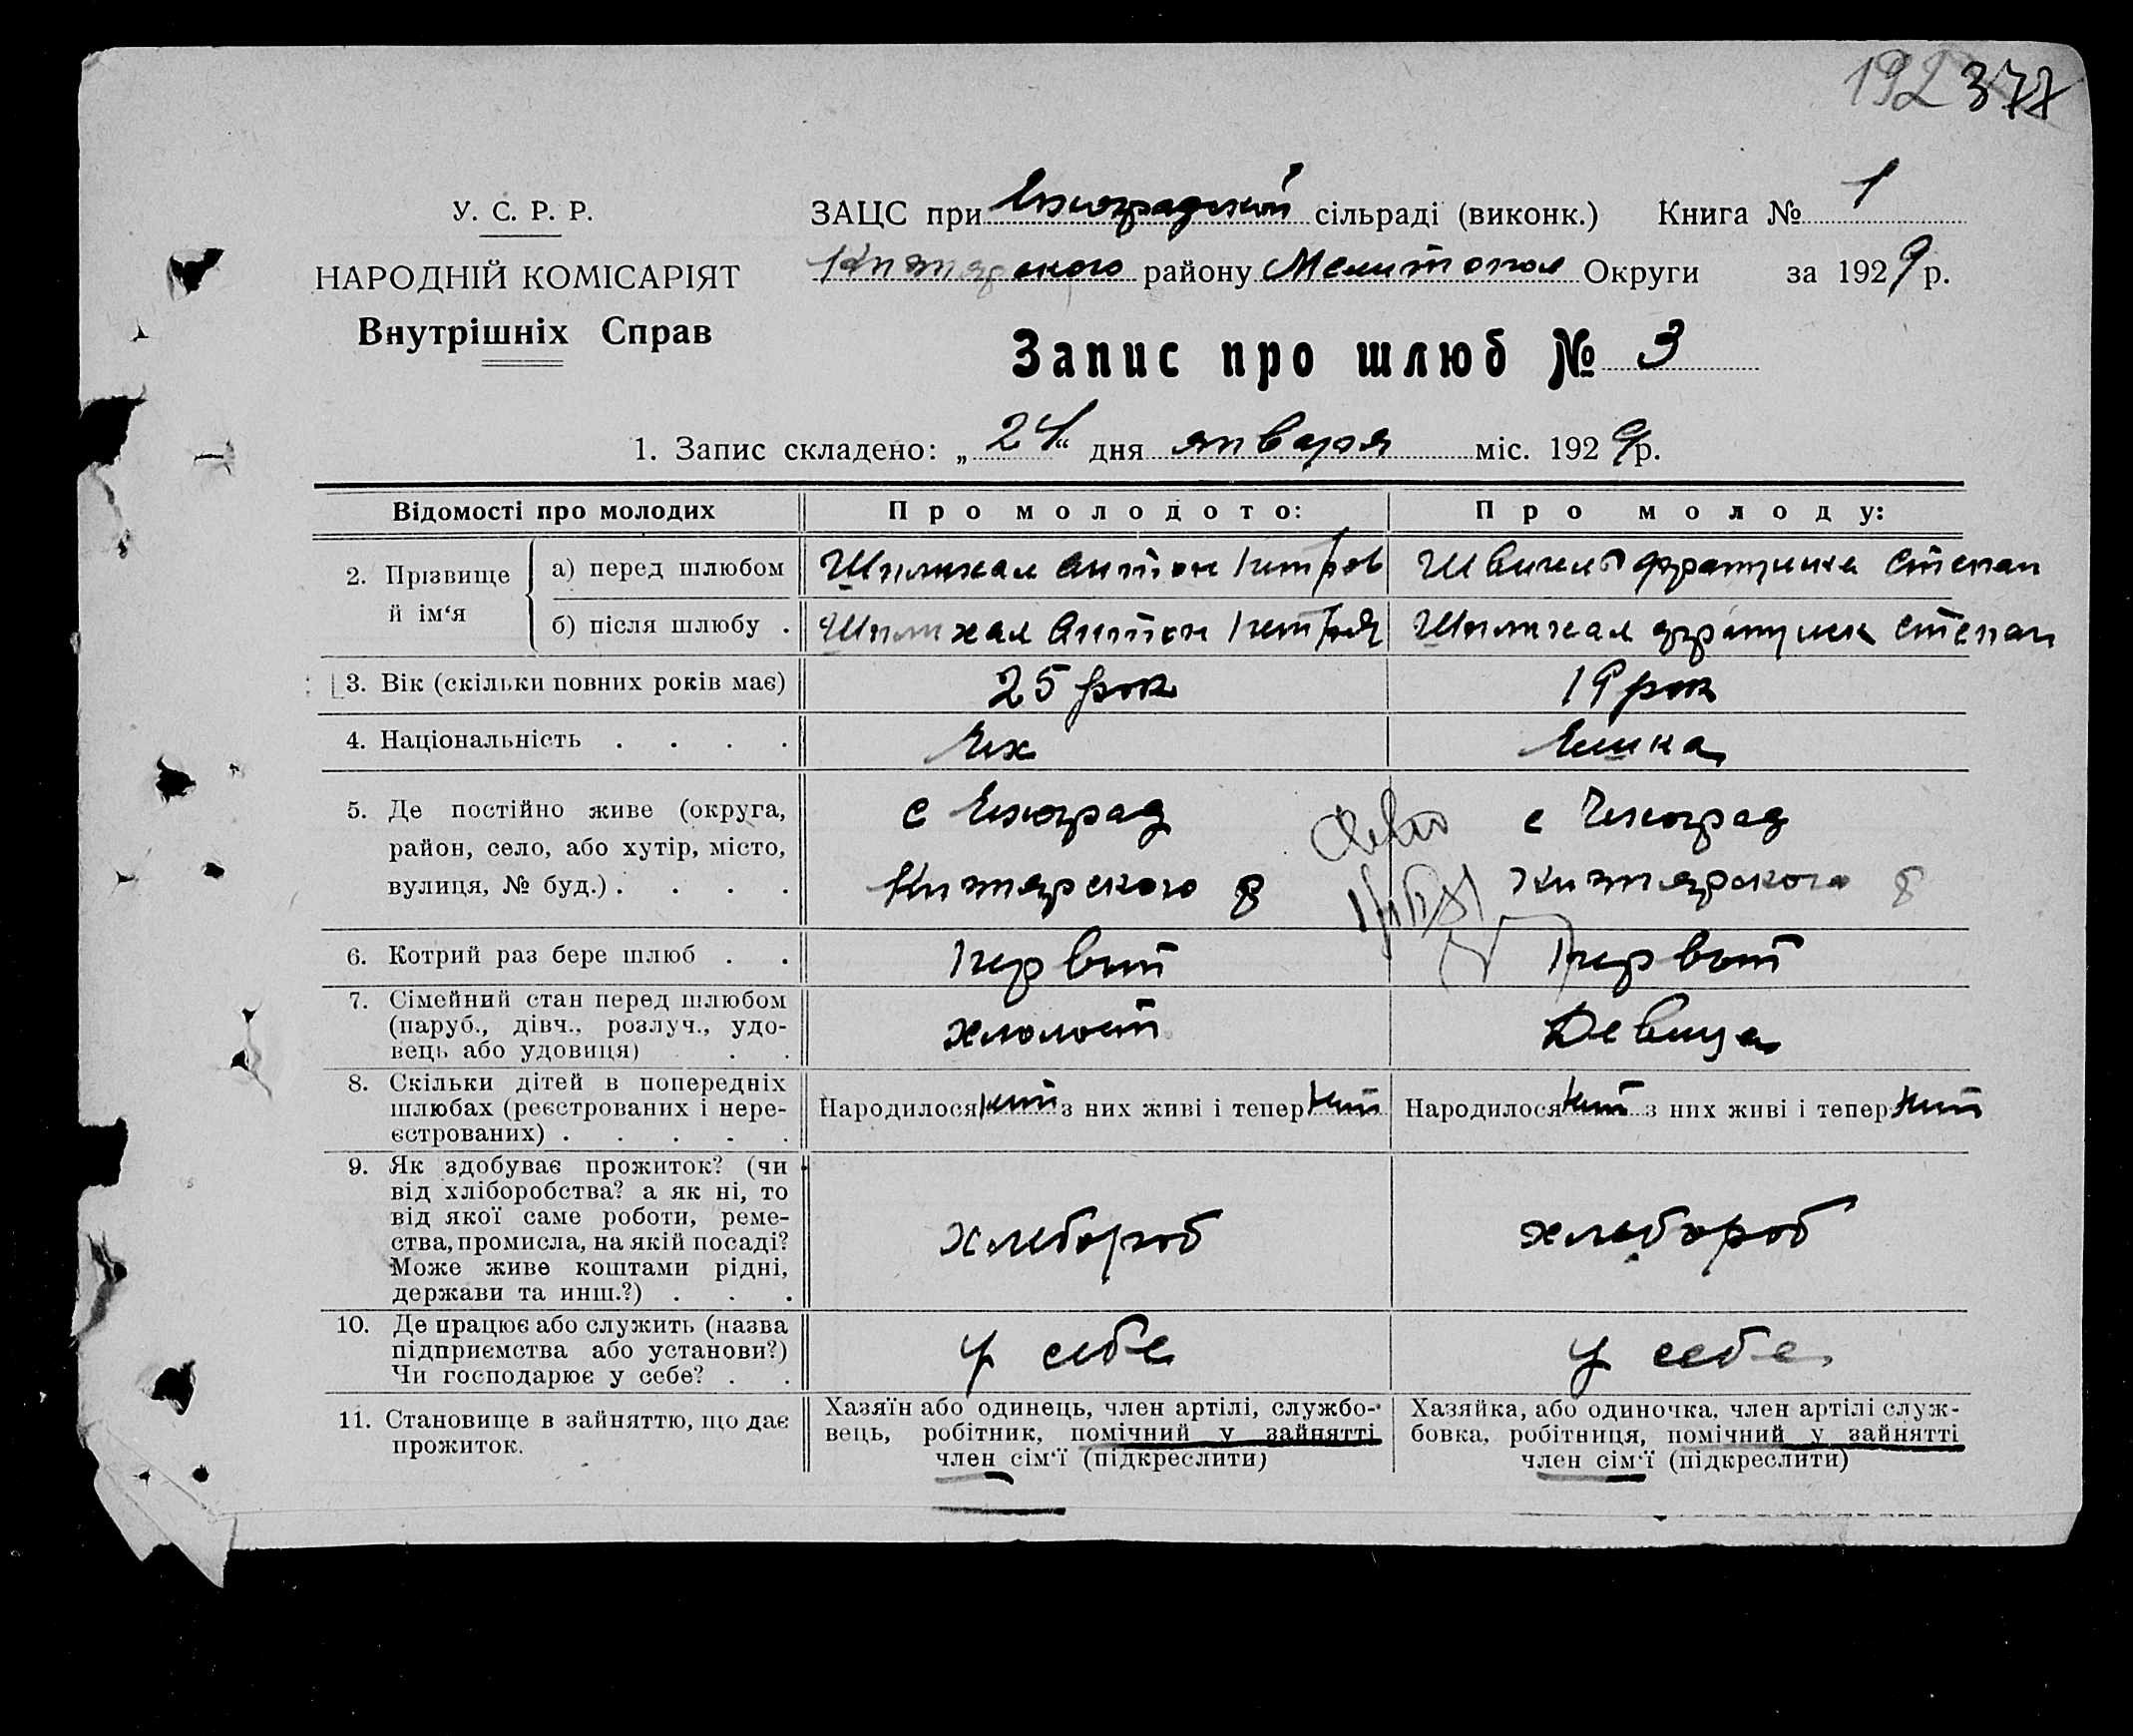 192 377
У. С. Р. Р.
НАРОДНІЙ КОМІСАРІЯТ
Внутрішніх Справ
ЗАЦС при Чехоградской сільраді (виконк.) Книга № 1
Кизиярского району Мелитопол Округи за 1929 р.
Запис про шлюб № 3
1. Запис складено: „24“ дня января міс. 1929 р.
Відомості про молодих
Про молодого:
Про молоду:
2. Прізвище й ім‘я
а) перед шлюбом
Антон Петров
Степан
б) після шлюбу .
Антон Петров
Степан
3. Вік (скільки повних років має)
25 рок
19 рок
4. Національність . . . .
Чех
Чешка
5. Де постійно живе (округа,
район, село, або хутір, місто,
вулиця, № буд.) . . . .
с Чехоград
Кизиярского р
с Чехоград
Кизиярского р
6. Котрий раз бере шлюб . .
Первий
Первой
7. Сімейний стан перед шлюбом
(паруб., дівч., розлуч., удо-
вець або удовиця) . .
холост
Девица
8. Скільки дітей в попередніх
шлюбах (реєстрованих і нере-
єстрованих) . . . . .
Народилося нит з них живі і тепер нит
Народилося нит з них живі і тепер нит
9. Як здобуває прожиток? (чи
від хліборобства? а як ні, то
від якої саме роботи, реме-
ства, промисла, на якій посаді?
Може живе коштами рідні,
держави та инш.?) . . .
хлебороб
хлебороб
10. Де працює або служить (назва
підприємства або установи?)
Чи господарює у себе? . .
у себе
у себе
11. Становище в зайняттю, що дає
прожиток.
Хазяїн або одинець, член артілі, службо-
вець, робітник, помічний у зайнятті
член сім‘ї (підкреслити)
Хазяйка, або одиночка, член артілі служ-
бовка, робітниця, помічний у зайнятті
член сім‘ї (підкреслити)